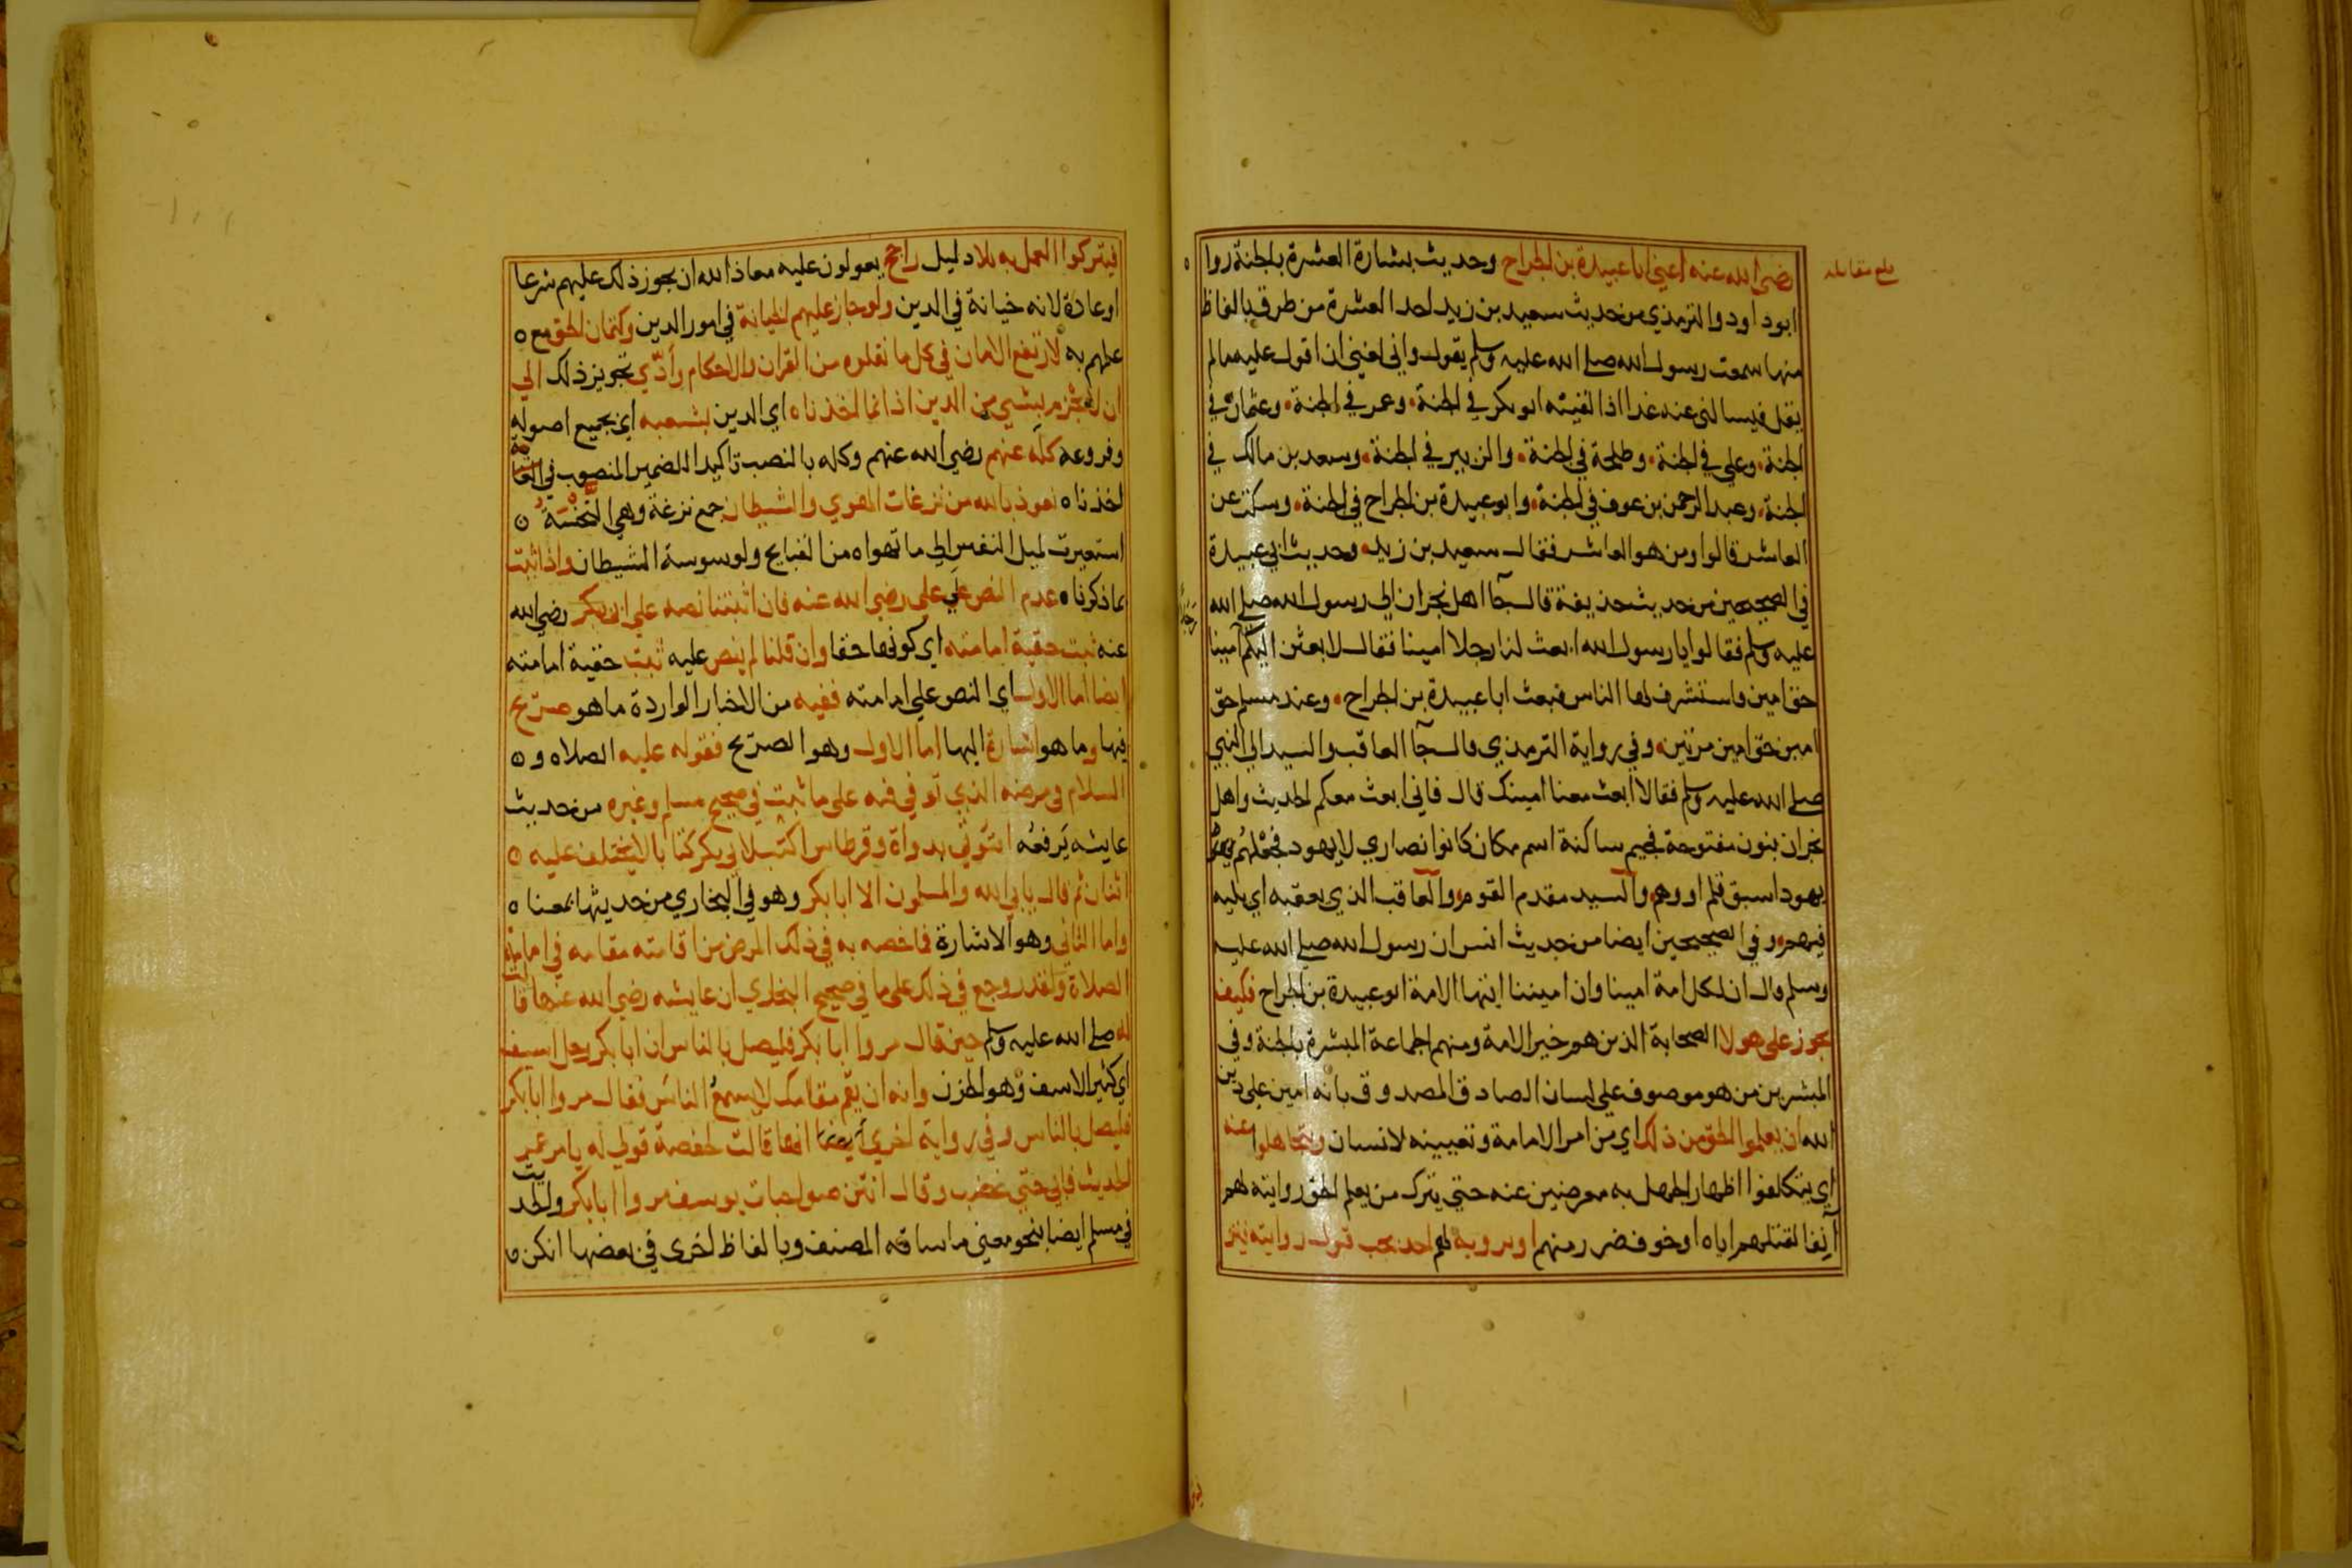 رضي الله عنه اعني ابا عبيدة بن الجراح وحديث بشارة العشرة بالجنة روا
بلغ مقابله
ابو داود والترمذي من حديث سعيد بن زيد احد العشرة من طرق بالفاظ
منها سمعت رسول الله صلى الله عليه وسلم يقول واني لغني ان اقول عليه ما لم
يقل فيسالني عنه غدا اذا لقيته ابو بكر في الجنة وعمر في الجنة وعثمان في
الجنة وعلي في الجنة وطلحة في الجنة والزبير في الجنة وسعد بن مالك في
الجنة وعبد الرحمن بن عوف في الجنة وابو عبيدة بن الجراح في الجنة وسكت عن
العاشر قالوا ومن هو العاشر فقال سعيد بن زيد وحديث ابي عبيدة
في الصحيحين من حديث حذيفة قال جآ اهل نجران الي رسول الله صلى الله
عليه وسلم فقالوا يا رسول الله ابعث لنا رجلا امينا فقال لابعثن اليكم امينا
حق امين فاستشرف لها الناس فبعث ابا عبيدة بن الجراح وعند مسلم حق
امين حق امين مرتين وفي رواية الترمذي قال جآ العاقب والسيد الي النبي
صلى الله عليه وسلم فقالا ابعث معنا امينك قال فاني ابعث معكم الحديث واهل
نجران بنون مفتوحة فجيم ساكنة اسم مكان كانوا نصاري لا يهود فجعلهم
يهودا سبق قلم او وهم والسيد مقدم القوم والعاقب الذي يعقبه اي يليه
فيهم وفي الصحيحين ايضا من حديث انس ان رسول الله صلى الله عليه
وسلم قال ان لكل امة امينا وان اميننا ايتها الامة ابو عبيدة بن الجراح فكيف
يجوز على هولا الصحابة الذين هم خير الامة ومنهم الجماعة المبشرة بالجنة وفي
المبشرين من هو موصوف علي لسان الصادق المصدوق بانه امين علي دين
الله ان يعلموا الحق من ذلك اي من امر الامامة وتعيينه لانسان ويتجاهلوا عنه
اي يتكلفوا اظهار الجهل به معرضين عنه حتي يترك من يعلم الحق روايته لهم
آنفا لقتلهم اياه او خوف ضرر منهم او يرويه لهم احد يجب قبول روايته
فيتركوا العمل به بلا دليل راجح يعولون عليه معاذ الله ان يجوز ذلك عليهم شرعا
او عادة لانه خيانة في الدين ولو جاز عليهم الخيانة في امور الدين وكتمان الحق مع
علمهم به لارتفع الامان في كل ما نقلوه من القران والاحكام وأدّي تجويز ذلك الي
ان لا نجزم بشيي من الدين اذ انما اخذناه اي الدين بشعبه اي بجميع اصوله
وفروعه كله عنهم رضي الله عنهم وكله بالنصب تاكيدا للضمير المنصوب في
اخذناه نعوذ بالله من نزغات الهوي والشيطان جمع نزغة وهي النخسة
استعيرت لميل النفس الي ما تهواه من القبايح ولوسوسة الشيطان واذا ثبت
بما ذكرناه عدم النص علي علي رضي الله عنه فان اثبتنا نصه علي ابي بكر رضي الله
عنه ثبت حقية امامته اي كونها حقا وان قلنا لم ينص عليه ثبت حقية امامته
ايضا اما الاول اي النص علي امامته ففيه من الاخبار الواردة ما هو صريح
فيها وما هو اشارة اليها اما الاول وهو الصريح فقوله عليه الصلاه و
السلام في مرضه الذي توفي فيه علي ما ثبت في صحيح مسلم وغيره من حديث
عايشه يرفعه ائتوني بدواة وقرطاس اكتب لابي بكر كتابا لا يختلف عليه
اثنان ثم قال يابي الله والمسلمون الا ابا بكر وهو في البخاري من حديثها بمعناه
واما الثاني وهو الاشارة فاخصه به في ذلك المرض من اقامته مقامه في امامة
الصلاة ولقد روجع في ذلك علي ما في صحيح البخاري ان عايشه رضي الله عنها قا
له صلى الله عليه وسلم حين قال مروا ابا بكر فليصل بالناس ان ابا بكر رجل اسيف
اي كثير الاسف وهو الحزن وانه ان يقم مقامك لا يسمع الناس فقال مروا ابا بكر
فليصل بالناس وفي رواية اخري ايضا انها قالت لحفصة قولي له يامر عمر
الحديث فابي حتي غضب وقال انتن صواحبات يوسف مروا ابا بكر والحديث
في مسلم ايضا بنحو معني ما ساقه المصنف وبالفاظ اخرى في بعضها انكن